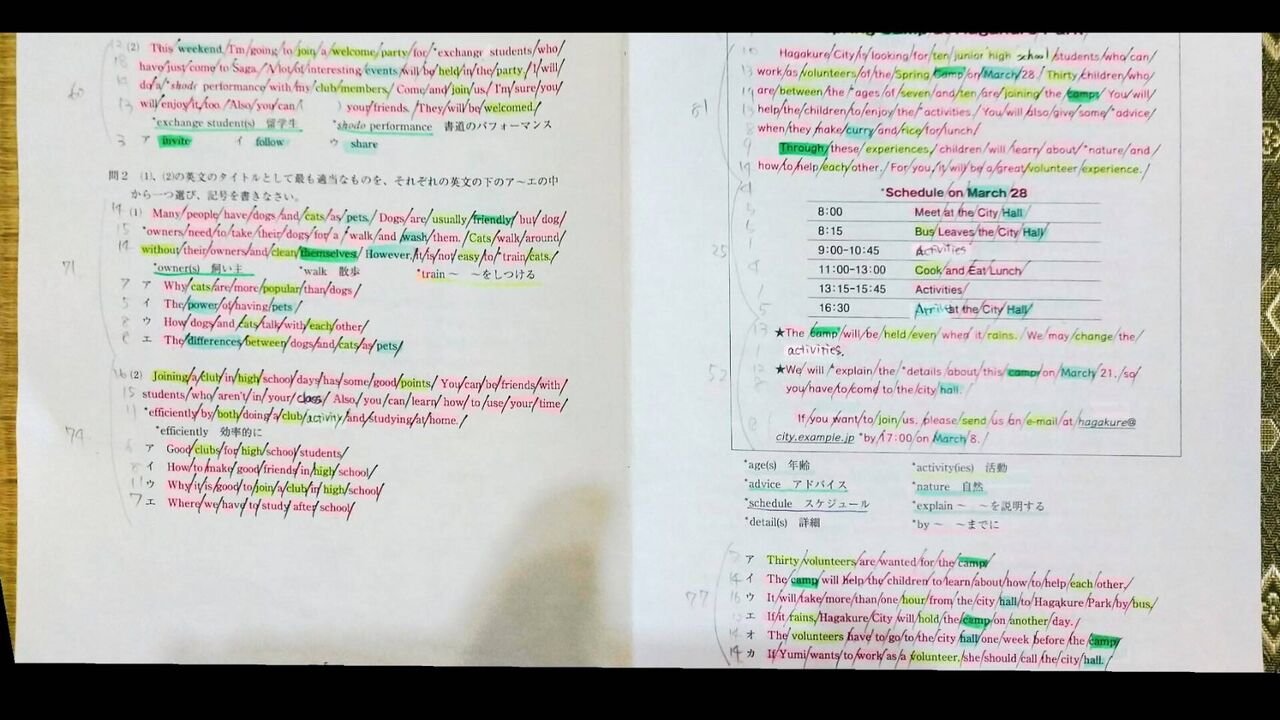 (2) This weekend, I'm going to join a welcome party for *exchange students who
have just come to Saga. A lot of interesting events will be held in the party. I will
do a *shodo performance with my club members. Come and join us. I'm sure you
will enjoy it, too. Also, you can ( ) your friends. They will be welcomed.
*exchange student(s) 留学生 *shodo performance 書道のパフォーマンス
ア invite イ follow ウ share
問2 (1)、(2)の英文のタイトルとして最も適当なものを、それぞれの英文の下のア～エの中
から一つ選び、記号を書きなさい。
(1) Many people have dogs and cats as pets. Dogs are usually friendly, but dog
*owners need to take their dogs for a *walk and wash them. Cats walk around
without their owners and clean themselves. However, it is not easy to *train cats.
*owner(s) 飼い主 *walk 散歩 *train ～ ～をしつける
ア Why cats are more popular than dogs
イ The power of having pets
ウ How dogs and cats talk with each other
エ The differences between dogs and cats as pets
(2) Joining a club in high school days has some good points. You can be friends with
students who aren't in your class. Also, you can learn how to use your time
*efficiently by both doing a club activity and studying at home.
*efficiently 効率的に
ア Good clubs for high school students
イ How to make good friends in high school
ウ Why it is good to join a club in high school
エ Where we have to study after school
60
71
74
Hagakure City is looking for ten junior high school students who can
work as volunteers of the Spring Camp on March 28. Thirty children who
are between the *ages of seven and ten are joining the camp. You will
help the children to enjoy the *activities. You will also give some *advice
when they make curry and rice for lunch.
Through these experiences, children will learn about *nature and
how to help each other. For you, it will be a great volunteer experience.
*Schedule on March 28
8:00 Meet at the City Hall
8:15 Bus Leaves the City Hall
9:00-10:45 Activities
11:00-13:00 Cook and Eat Lunch
13:15-15:45 Activities
16:30 Arrive at the City Hall
★The camp will be held even when it rains. We may change the
activities.
★We will *explain the *details about this camp on March 21, so
you have to come to the city hall.
If you want to join us, please send us an e-mail at hagakure@
city.example.jp *by 17:00 on March 8.
*age(s) 年齢 *activity(ies) 活動
*advice アドバイス *nature 自然
*schedule スケジュール *explain ～ ～を説明する
*detail(s) 詳細 *by ～ ～までに
ア Thirty volunteers are wanted for the camp.
イ The camp will help the children to learn about how to help each other.
ウ It will take more than one hour from the city hall to Hagakure Park by bus.
エ If it rains, Hagakure City will hold the camp on another day.
オ The volunteers have to go to the city hall one week before the camp.
カ If Yumi wants to work as a volunteer, she should call the city hall.
81
25
52
77